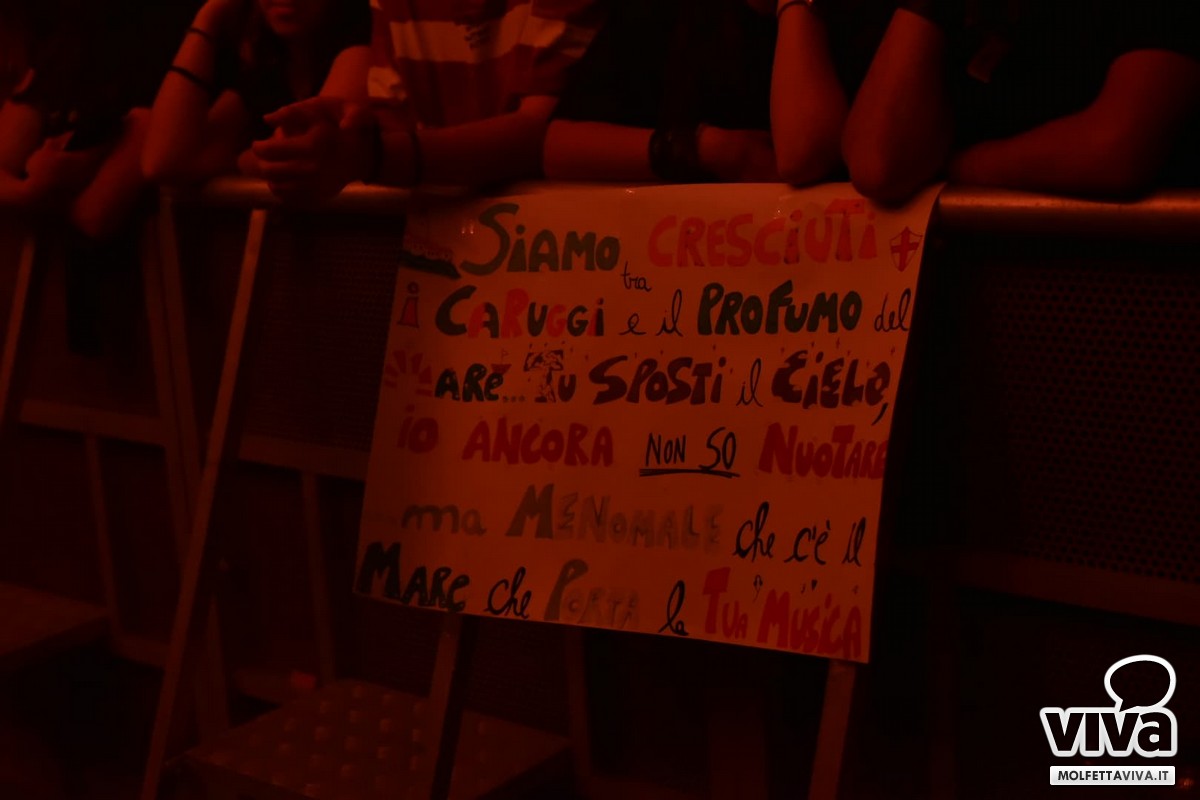 "SiAMO tra CRESCiUTi
i CARUGGi e il PROFUMO del
MARE... TU SPOSTi il CiELO,
iO ANCORA NON SO NUOTARE
ma MENOMALE che c'è il
MARE che PORTA la TUA MUSiCA
viva
MOLFETTAVIVA.IT